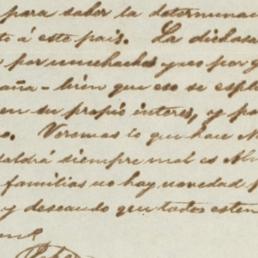 para saber la determinac
to á este pais. La dichosa
por muchachos y no por g
aña - bien que eso se espl
en su propio interes, y pa
o. Veremos lo que hace el
saldrá siempre mal es el
familias no hay novedad
y deseando que todos esten